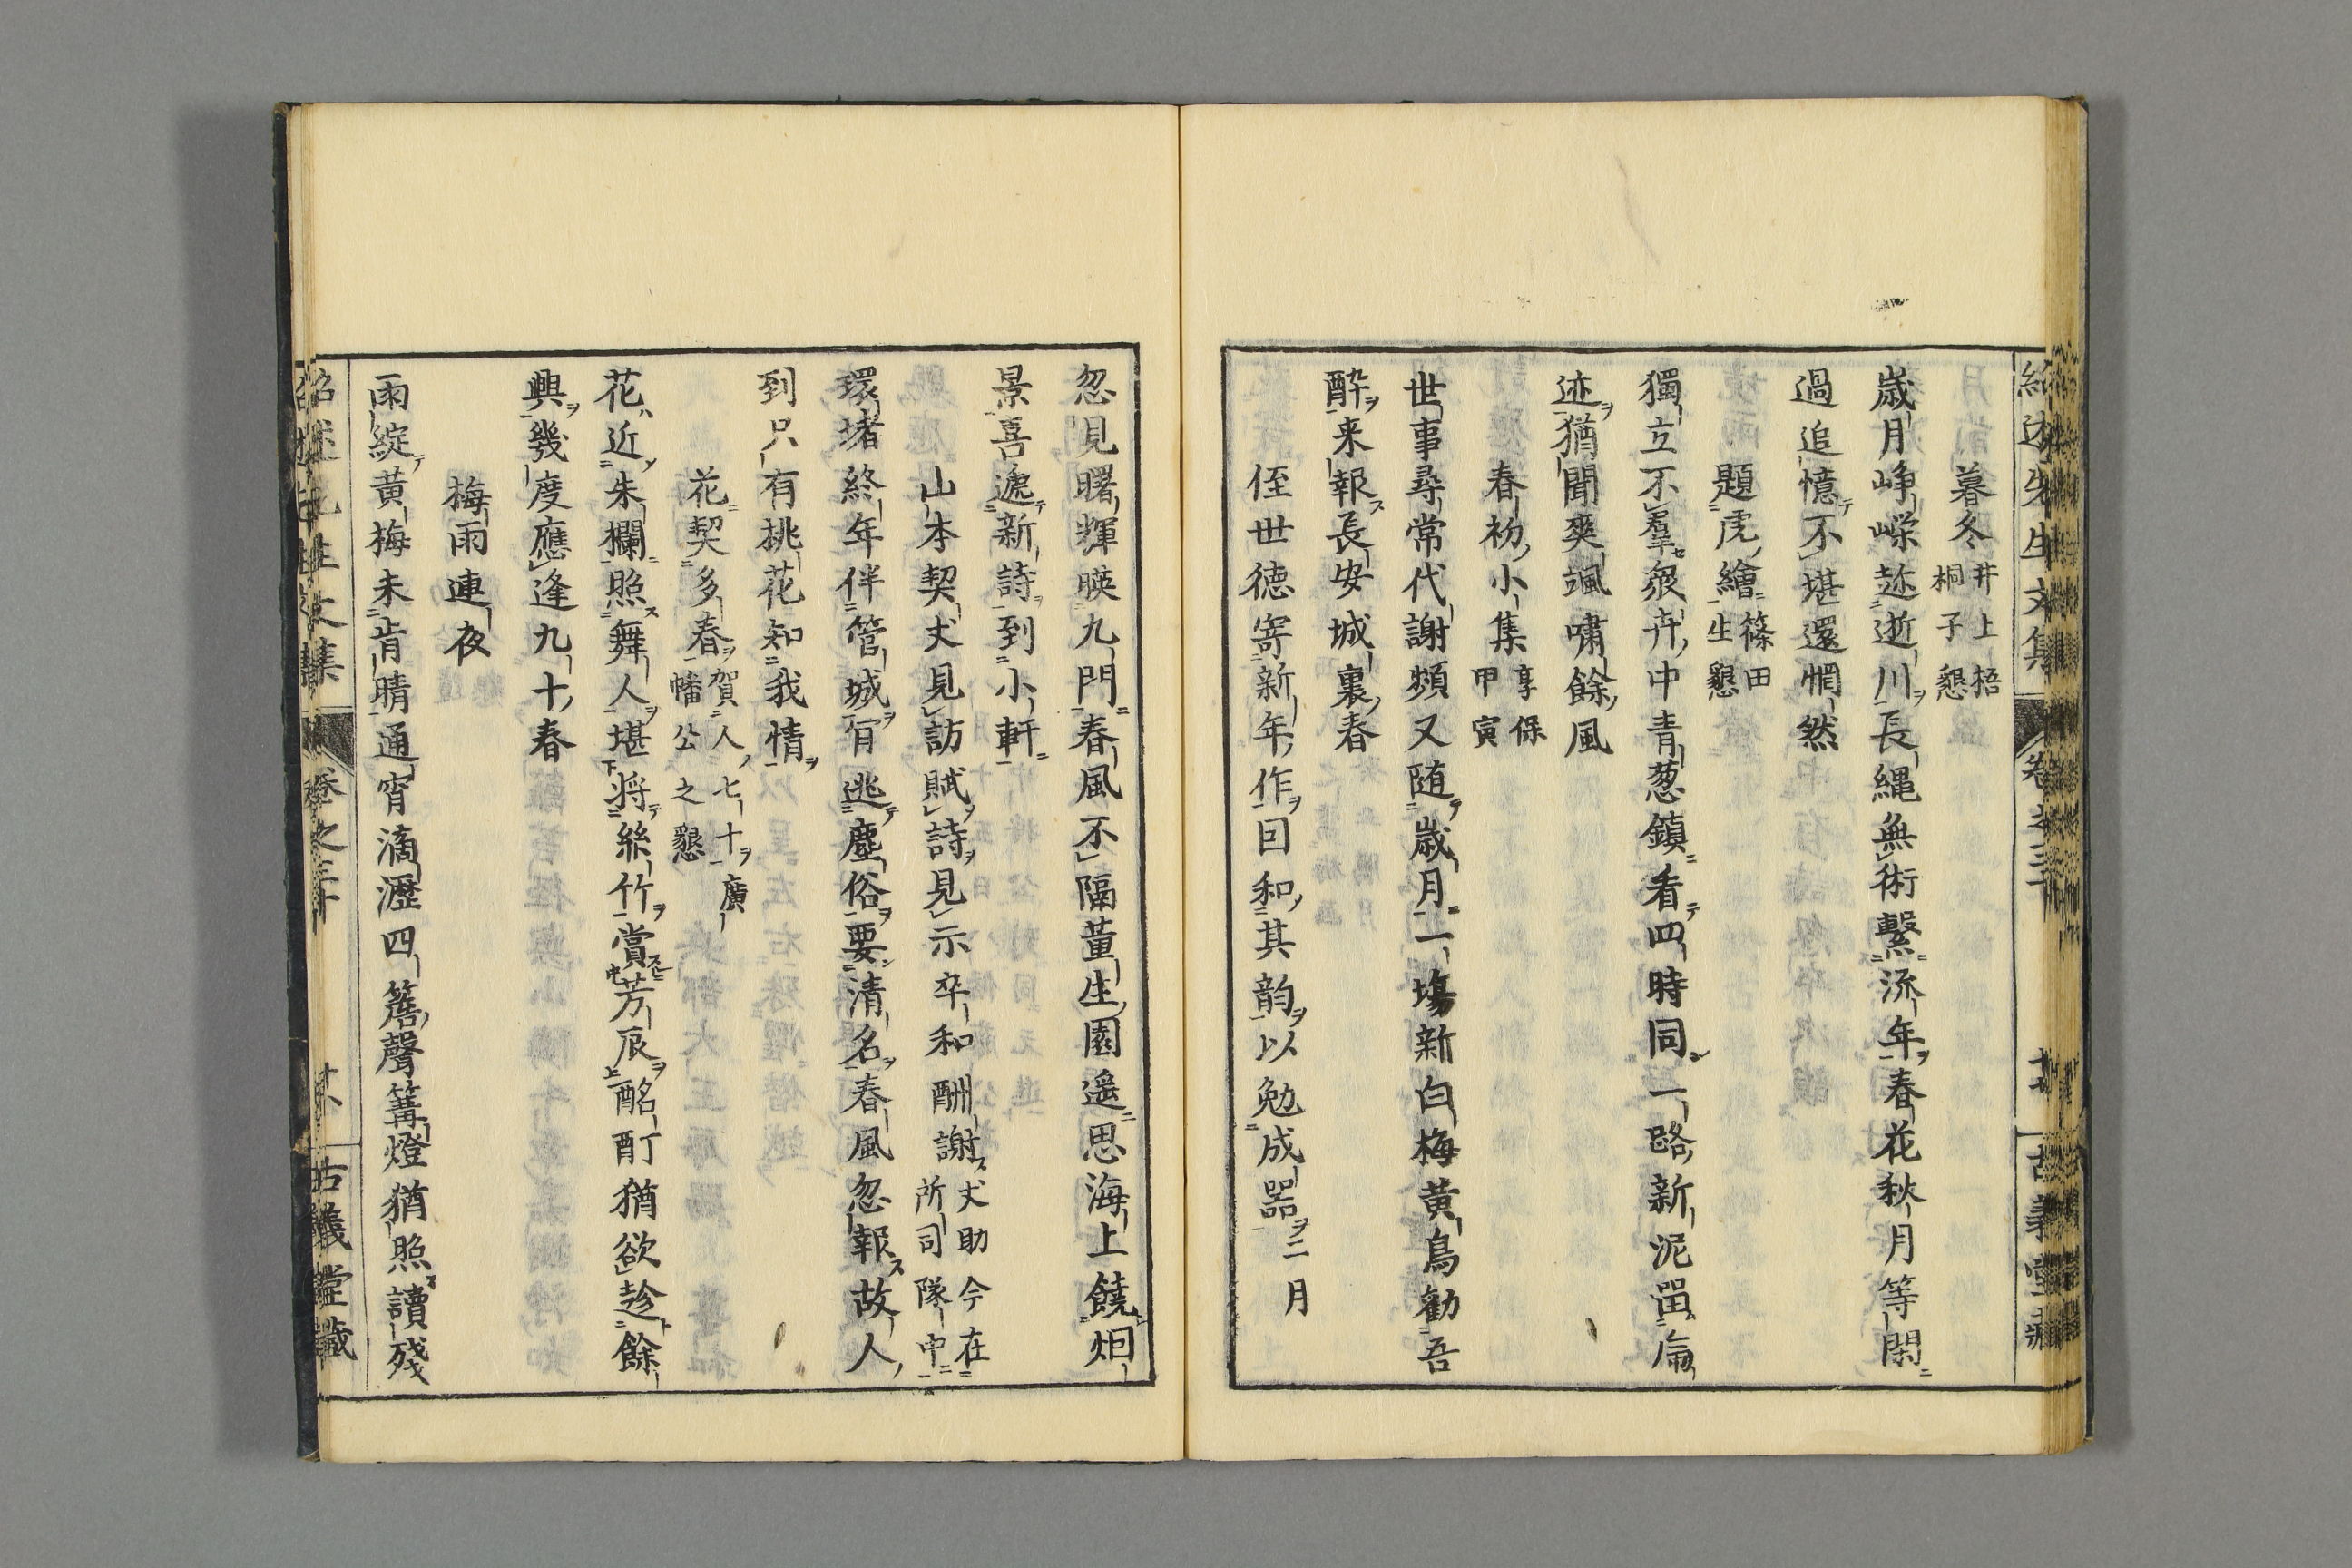 暮冬井上梧桐子懇
歳月崢嶸趂逝川長縄無術繫流年春花秋月等閑
過追憶不堪還惘然
題虎繪篠田生懇
獨立不羣衆卉中青葱鎮看四時同一路新泥留
迹猶聞爽颯嘯餘風
春初小集享保甲寅
世事尋常代謝頻又随歳月一塲新白梅黄鳥勧吾
酔来報長安城裏春
侄世徳寄新年作回和其韵以勉成器二月
忽見曙輝暎九門春風不隔董生園遥思海上饒
景喜遞新詩到小軒
山本契丈見訪賦詩見示卒和酬謝丈助今在所司隊中
環堵終年伴管城宵逃塵俗要清名春風忽報故人
到只有挑花知我情
花契多春賀人七十廣幡公之懇
花近朱欄照舞人堪将絲竹賞芳辰酩酊猶欲趁餘
興幾度應逢九十春
梅雨連夜
雨綻黄梅未肯晴通宵滴瀝四簷聲篝燈猶照讀殘
紹述先生文集
卷之三十
古義堂藏